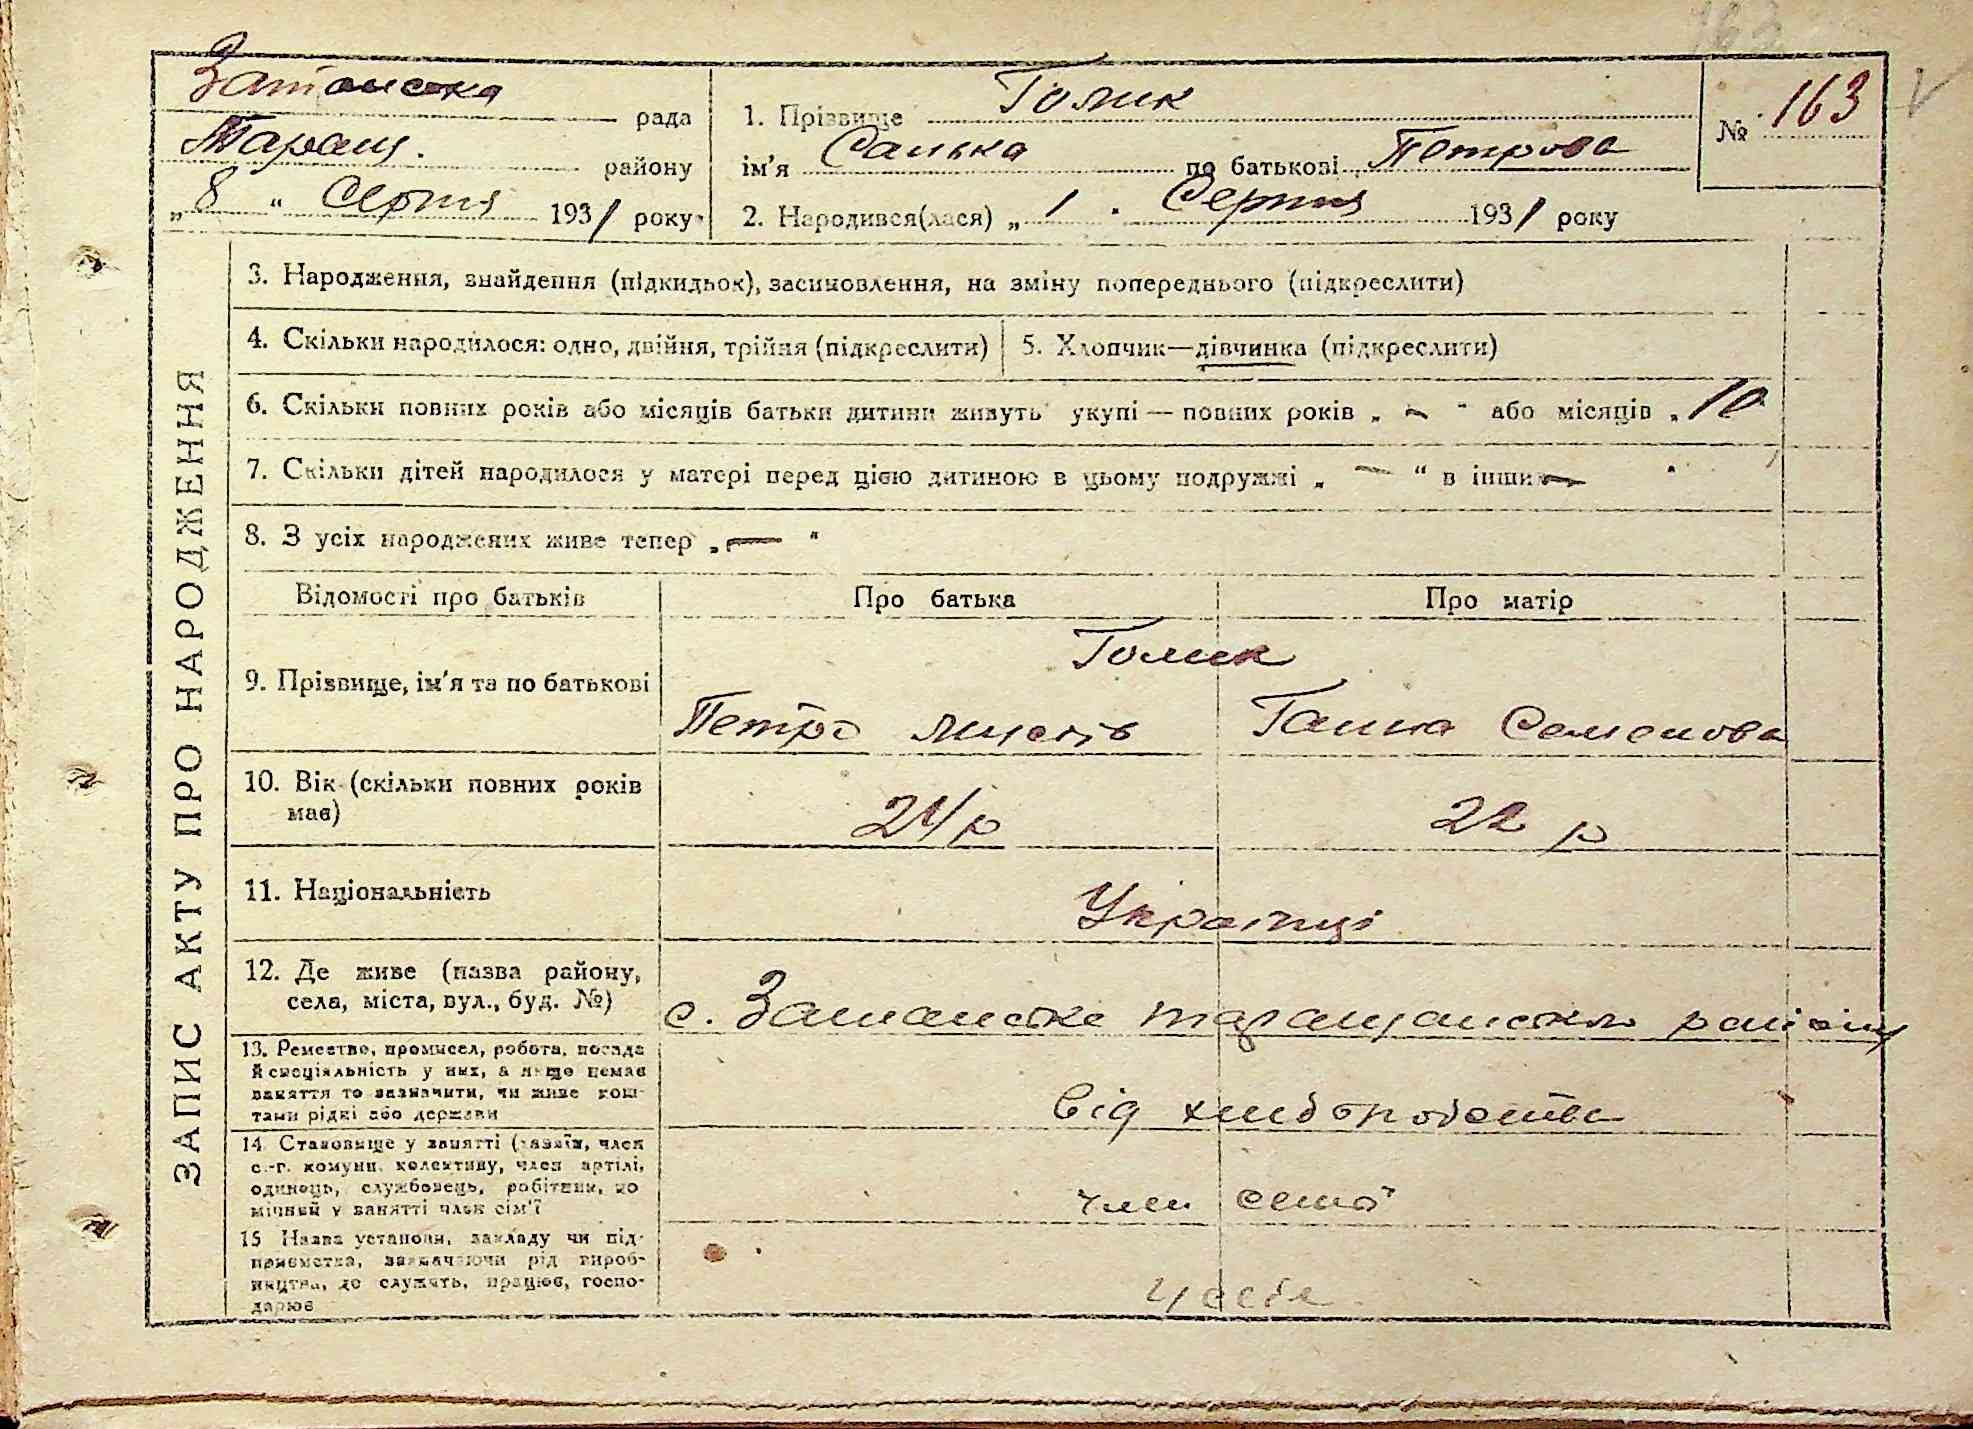 163
Затонська рада
Таращ. району
„ 8 “ Серпня 1931 року
1. Прізвище Голик
ім'я Санька по батькові Петрова
2. Народився(лася) „ 1 “ Серпня 1931 року
№ 163
ЗАПИС АКТУ ПРО НАРОДЖЕННЯ
3. Народження, знайдення (підкидьок), засиновлення, на зміну попереднього (підкреслити)
4. Скільки народилося: одно, двійня, трійня (підкреслити)
5. Хлопчик—дівчинка (підкреслити)
6. Скільки повних років або місяців батьки дитини живуть укупі — повних років „ — “ або місяців „ 10
7. Скільки дітей народилося у матері перед цією дитиною в цьому подружжі „ — “ в інших —
8. З усіх народжених живе тепер „ — “
Відомості про батьків Про батька Про матір
9. Прізвище, ім'я та по батькові
Голик
Петро Ганна Семенова
10. Вік (скільки повних років
має)
24 р 22 р
11. Національність
Українці
12. Де живе (назва району,
села, міста, вул., буд. №)
с. таращанського району
13. Ремество, промисел, робота, посада
й спеціяльність у них, а якщо немає
заняття то зазначити, чи живе кош-
тами рідні або держави
від хліборобства
14. Становище у занятті (хазяїн, член
с.-г. комуни, колективу, член артілі,
одинець, службовець, робітник, по
мічний у занятті член сім'ї
член сем'ї
15 Назва установи, закладу чи під-
приємства, зазначаючи рід вироб-
ництва, де служить, працює, госпо-
дарює
у себе